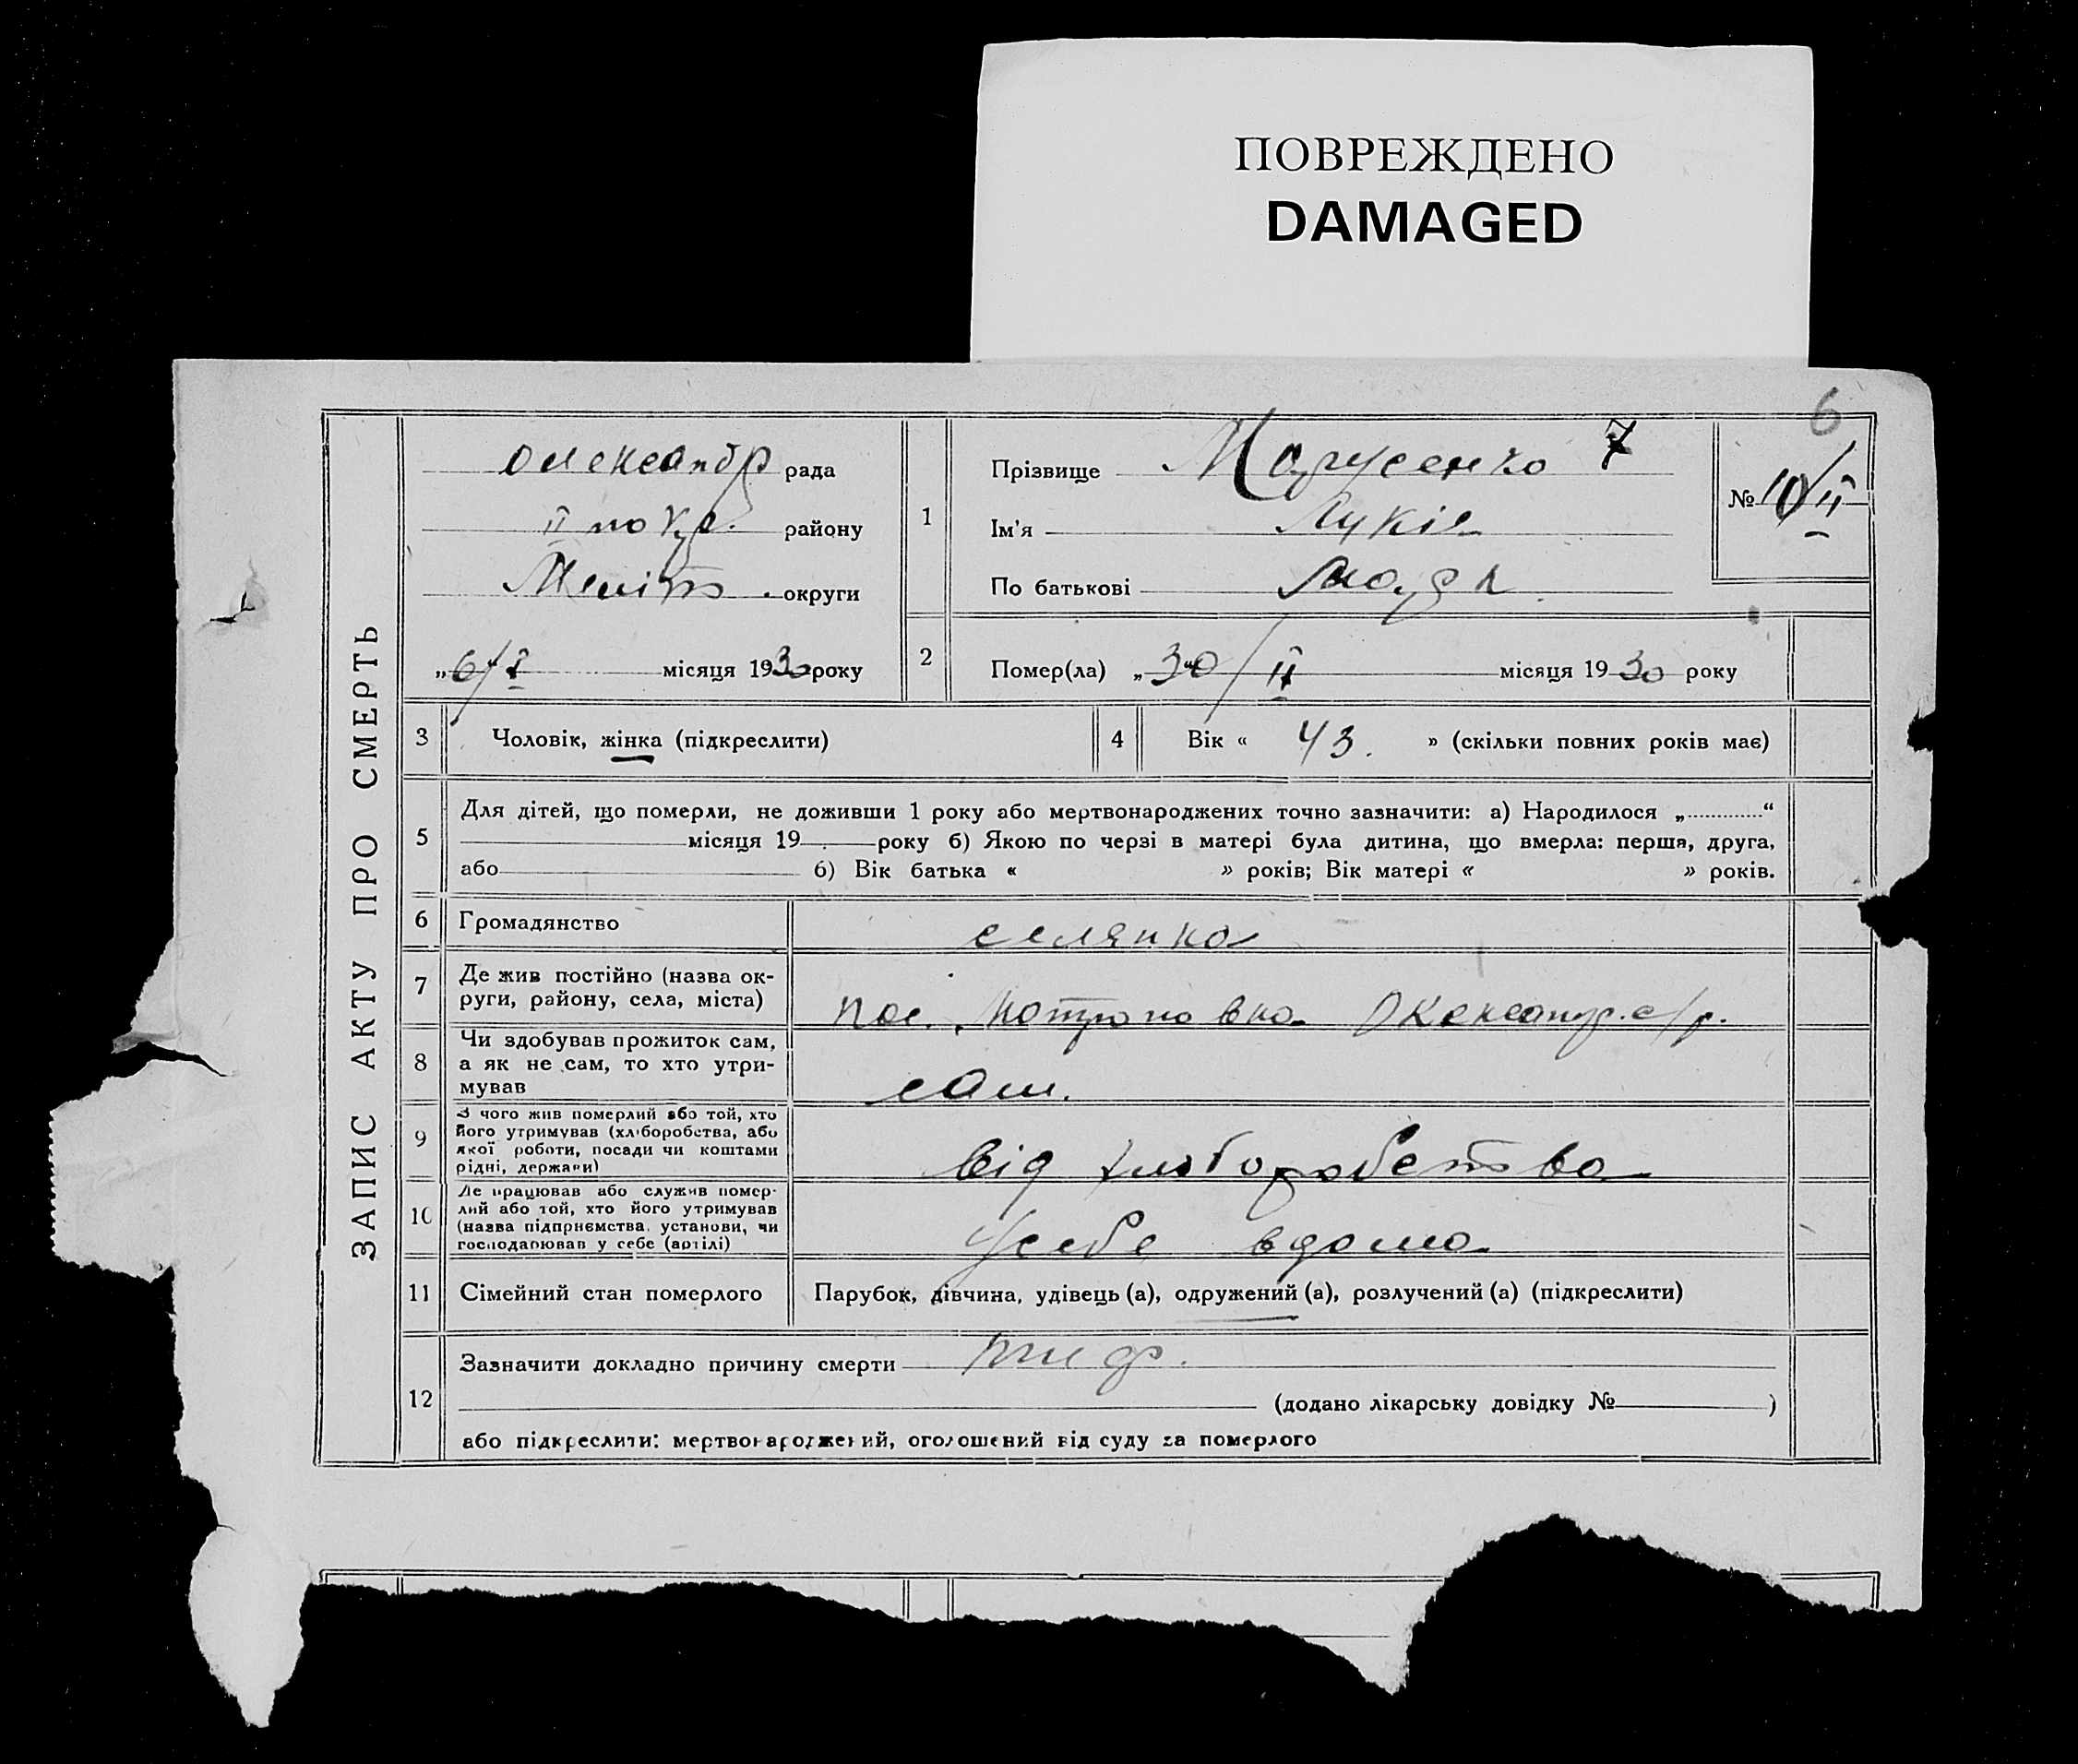 ПОВРЕЖДЕНО
DAMAGED
6
ЗАПИС АКТУ ПРО СМЕРТЬ
Олександр рада
II покр. району
Меліт. округи
„6/I місяця 1930 року
1
Прізвище Марусенко 7
Ім'я Лукія
По батькові
№ 10/II
2
Помер(ла) „30/II місяця 1930 року
3 Чоловік, жінка (підкреслити)
4 Вік « 43. » (скільки повних років має)
5
Для дітей, що померли, не доживши 1 року або мертвонароджених точно зазначити: а) Народилося „ “
місяця 19 року б) Якою по черзі в матері була дитина, що вмерла: перша, друга,
або б) Вік батька « » років; Вік матері « » років.
6 Громадянство селянка
7
Де жив постійно (назва ок-
руги, району, села, міста)
пос. Олександр. с/р.
8
Чи здобував прожиток сам,
а як не сам, то хто утри-
мував
сам.
9
З чого жив померлий або той, хто
його утримував (хліборобства, або
якої роботи, посади чи коштами
рідні, держави)
від хліборобства
10
Де працював або служив помер-
лий або той, хто його утримував
(назва підприємства, установи, чи
господарював у себе (артілі)
У себе вдома
11 Сімейний стан померлого Парубок, дівчина, удівець (а), одружений (а), розлучений (а) (підкреслити)
12
Зазначити докладно причину смерти тиф.
(додано лікарську довідку № )
або підкреслити: мертвонароджений, оголошений від суду за померлого